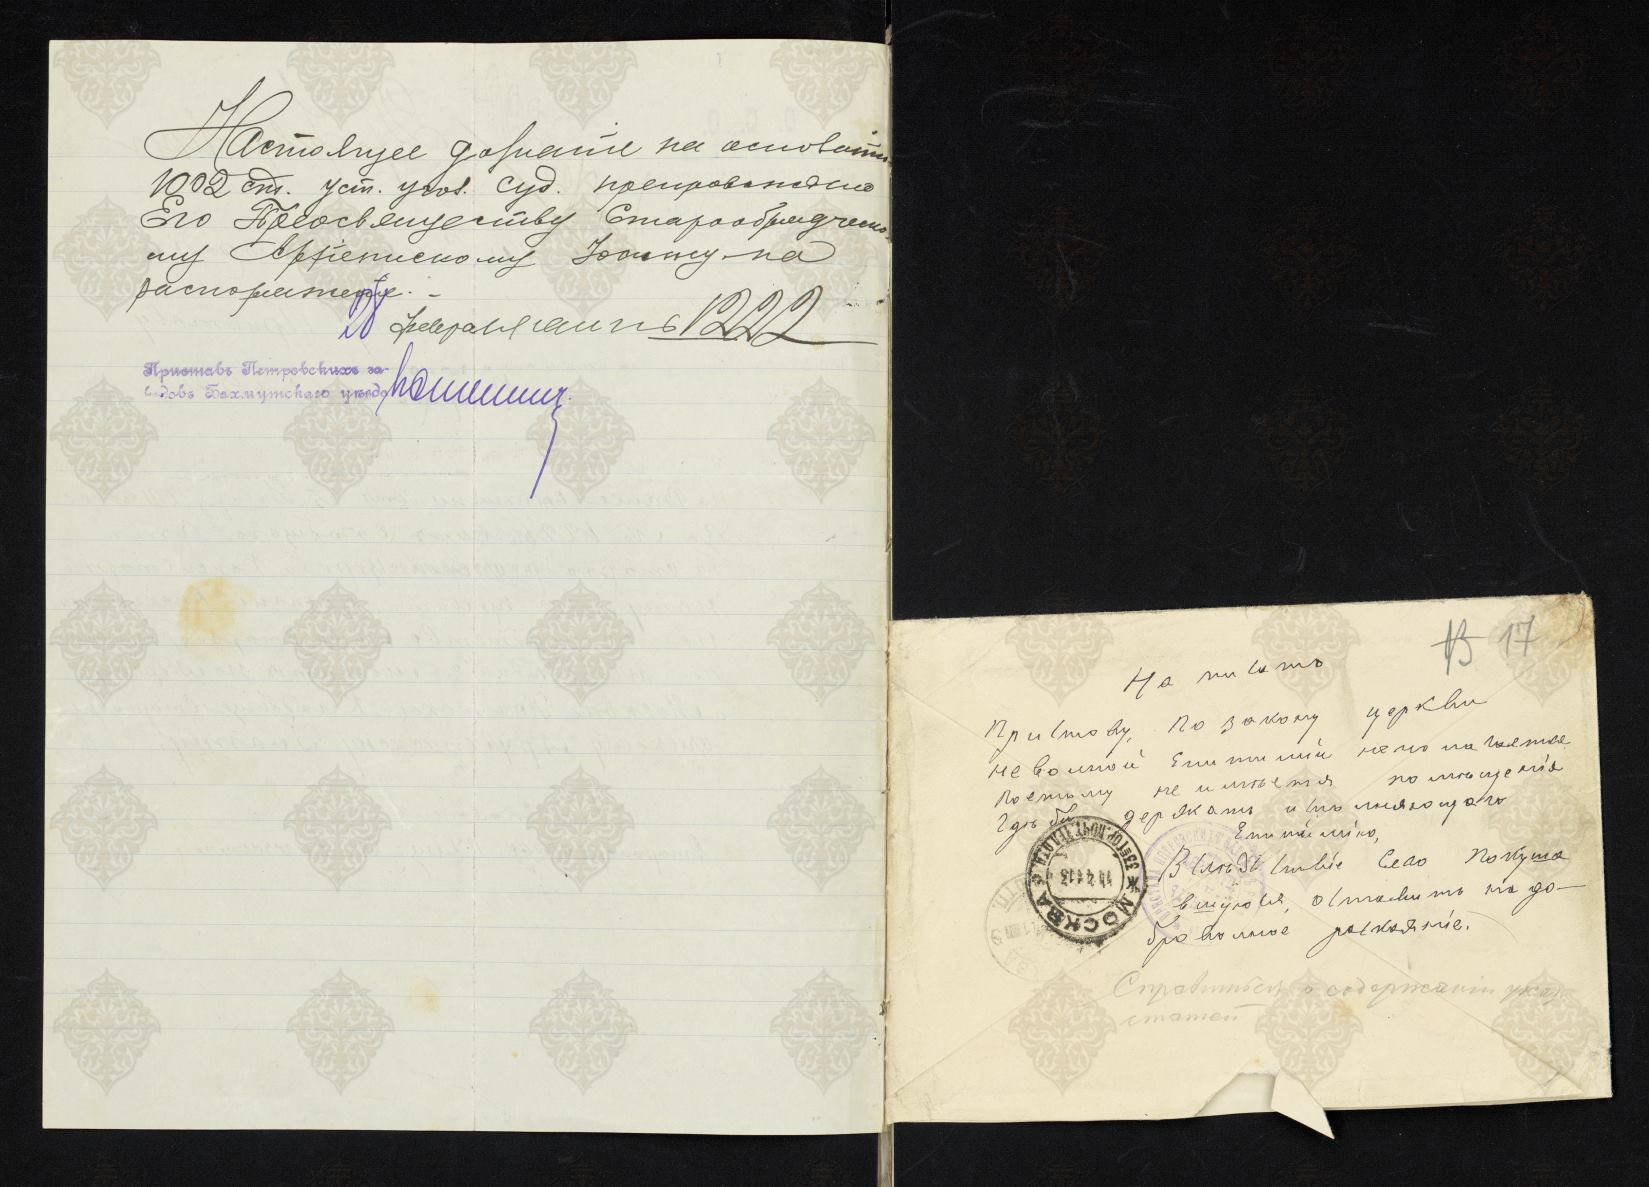 Настоящее дознаніе на основаніи
1002 ст. уст. угол. суд. препровождено
Его Преосвященству Старообрядческо-
му Архіепископу Іоанну на
распоряженіе. –
28 февраля 1222
Приставъ Петровскихъ за-
водовъ Бахмутскаго уѣзда
В 17
На писать
Приставу, По закону церкви
невольной Епитиміи неполагается
Поетому не имѣется помѣщенія
Гдѣ бы держать исполняющаго
Епитимію,
Вслѣдствіе Сего Покуша
вшуюся, оставить на до–
бровольное раскаяніе.
Справиться о содержаніи указ
статей
МОСКВА
33-Е ГОР. ПОЧТ. ТЕЛ. ОТД.